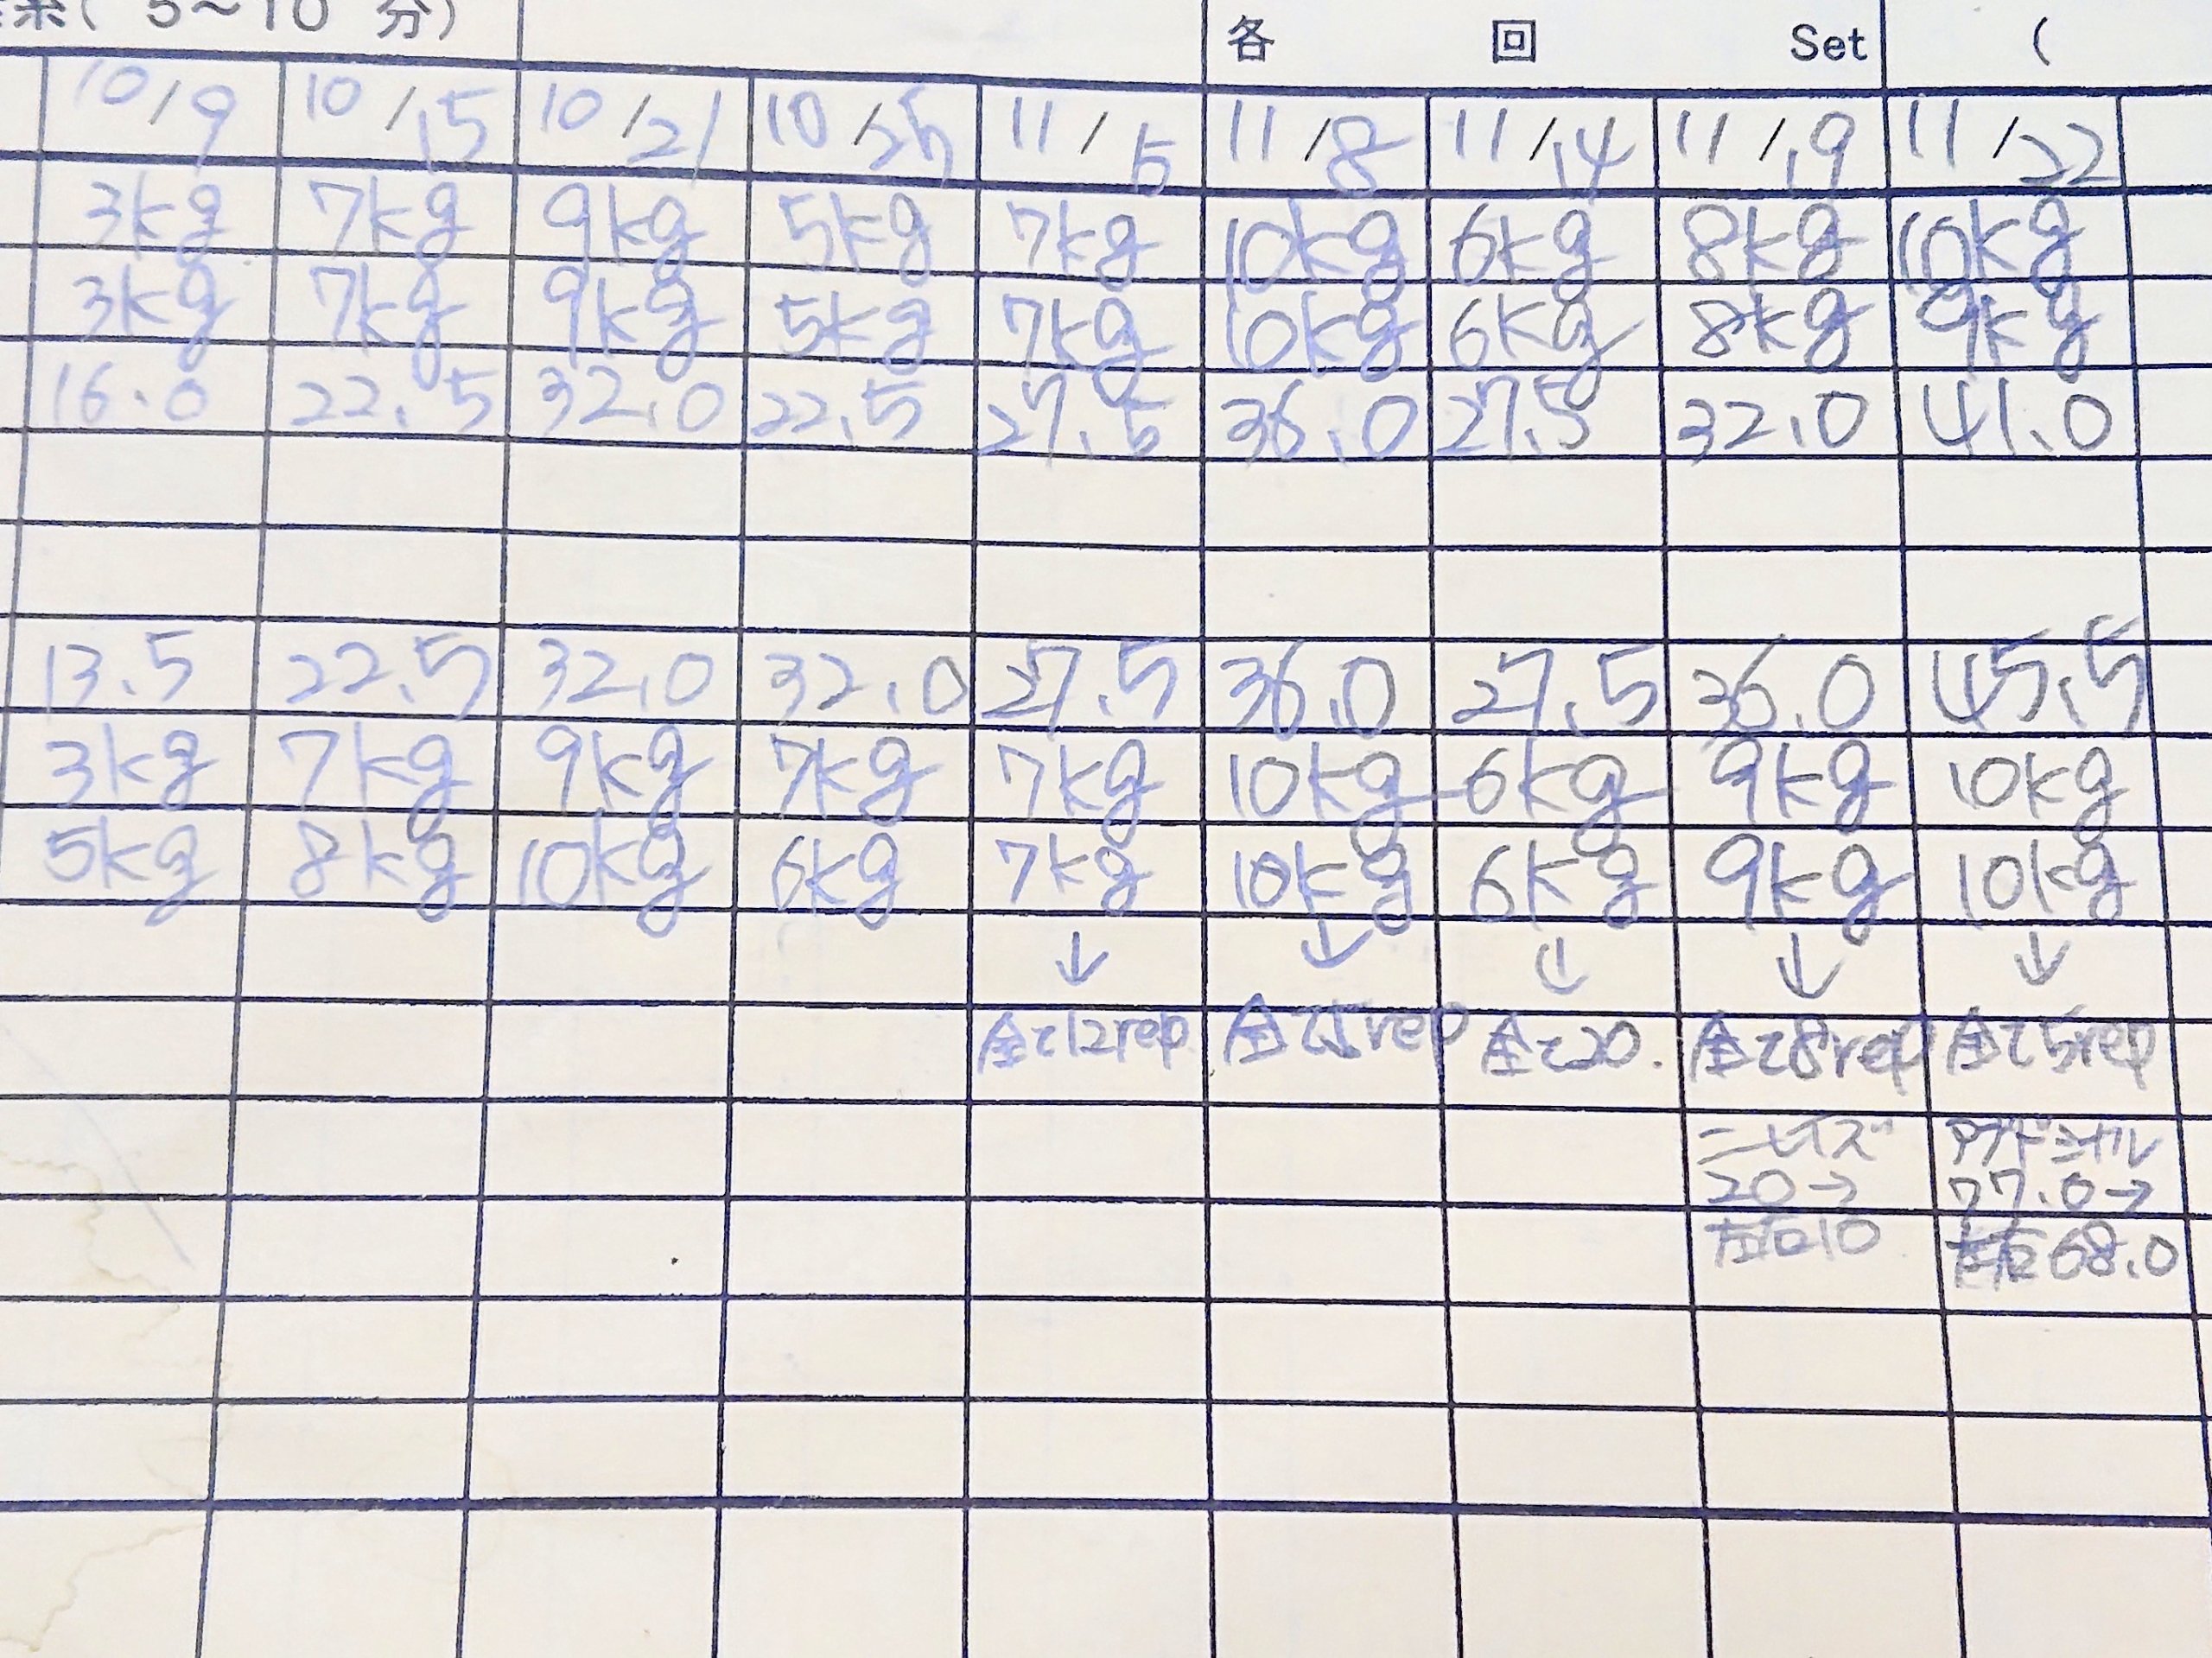 (5～10 分)
各 回 Set (
10/9 10/15 10/21 10/25 11/5 11/8 11/14 11/19 11/22
3kg 7kg 9kg 5kg 7kg 10kg 6kg 8kg 10kg
3kg 7kg 9kg 5kg 7kg 10kg 6kg 8kg 9kg
16.0 22.5 32.0 22.5 27.5 36.0 27.5 32.0 41.0
13.5 22.5 32.0 32.0 27.5 36.0 27.5 36.0 45.5
3kg 7kg 9kg 7kg 7kg 10kg 6kg 9kg 10kg
5kg 8kg 10kg 6kg 7kg 10kg 6kg 9kg 10kg
↓ ↓ ↓ ↓ ↓
全て12rep 全て5rep 全て20. 全て8rep 全て5rep
ニーレイズ アブドミナル
20→ 77.0→
左右10 左右68.0